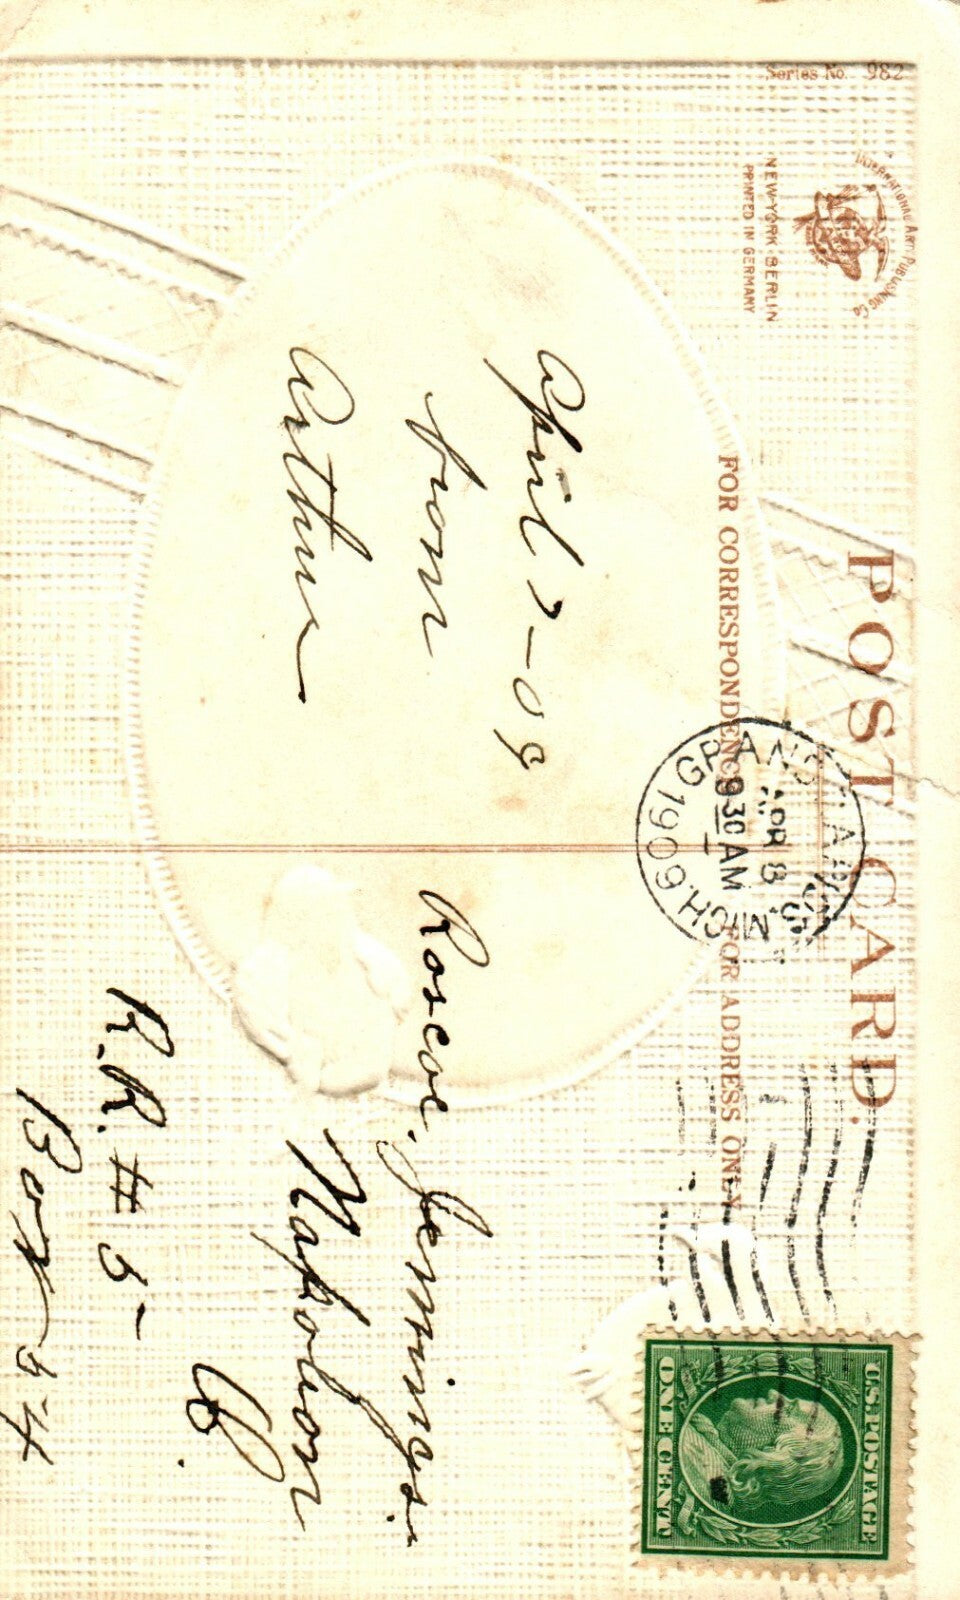 Series No. 982
INTERNATIONAL ART PUBLISHING Co
NEW-YORK-BERLIN
PRINTED IN GERMANY
POST CARD.
FOR CORRESPONDENCE
FOR ADDRESS ONLY
GRAND RAPIDS
APR 8
930 AM
MICH.
1909
U.S. POSTAGE
ONE CENT
April 7-09
from
Arthur
Roscoe Jennings.
Napoleon
O.
R.R. # 5-
Box 54